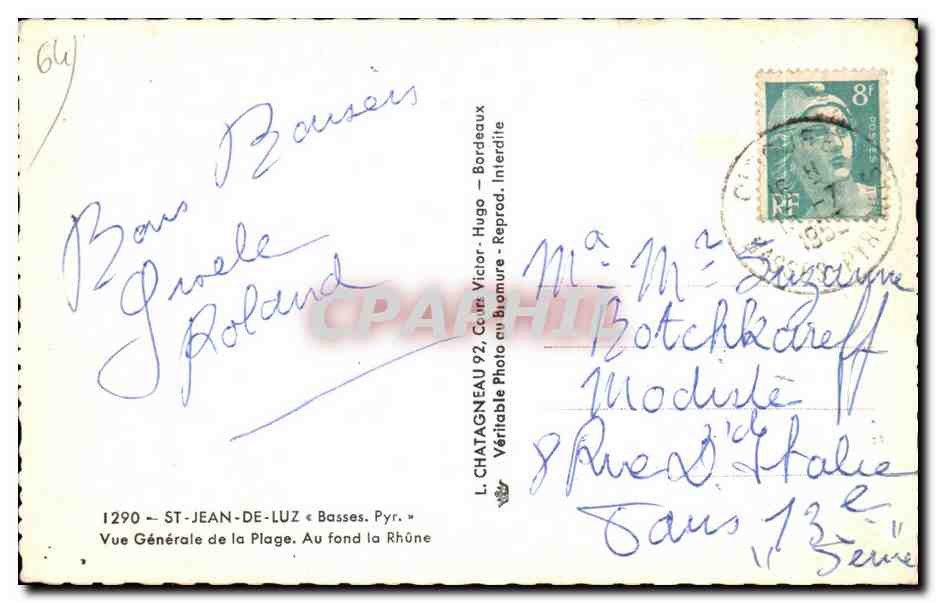 64
Bons Baisers
Gisele
Roland
1290 – ST-JEAN-DE-LUZ « Basses. Pyr. »
Vue Générale de la Plage. Au fond la Rhûne
L. CHATAGNEAU 92, Cours Victor-Hugo – Bordeaux
Véritable Photo au Bromure - Reprod. Interdite
8F
POSTES
RF
CPAPHIL
Ma - Mr Suzanne
Botchkareff
Modiste
8 Rue D'Italie
Paris 13e
"Seine"